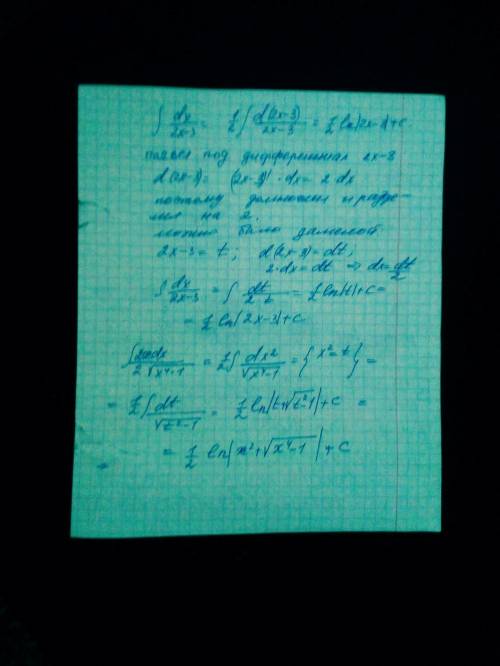 ∫ dx/(2x-3) = 1/2 ∫ d(2x-3)/(2x-3) = 1/2 ln|2x-3|+C.
под дифференциал 2x-3
d(2x-3) = (2x-3)' · dx = 2 dx
поэтому домножил и разде-
лил на 2.
можно было заменой
2x-3 = t; d(2x-3) = dt;
2·dx = dt ⇒ dx = dt/2
∫ dx/(2x-3) = ∫ dt/(2·t) = 1/2 ln|t|+C =
= 1/2 ln|2x-3|+C
∫ 2xdx/(2√(x⁴-1)) = 1/2 ∫ dx²/√(x⁴-1) = {x² = t} =
= 1/2 ∫ dt/√(t²-1) = 1/2 ln|t+√(t²-1)|+C =
= 1/2 ln|x²+√(x⁴-1)|+C